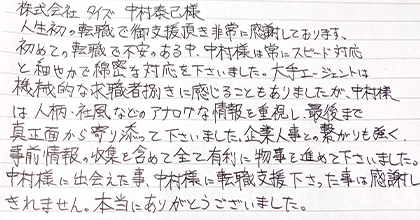 株式会社 タイズ 中村泰己様
人生初の転職で御支援頂き非常に感謝しております。
初めての転職で不安のある中、中村様は常にスピード対応
と細やかで綿密な対応を下さいました。大手エージェントは
機械的な求職者捌きに感じることもありましたが、中村様
は人柄・社風などのアナログな情報を重視し、最後まで
真正面から寄り添って下さいました。企業人事との繋がりも強く、
事前情報の収集を含めて全て有利に物事を進めて下さいました。
中村様に出会えた事、中村様に転職支援下さった事は感謝し
きれません。本当にありがとうございました。